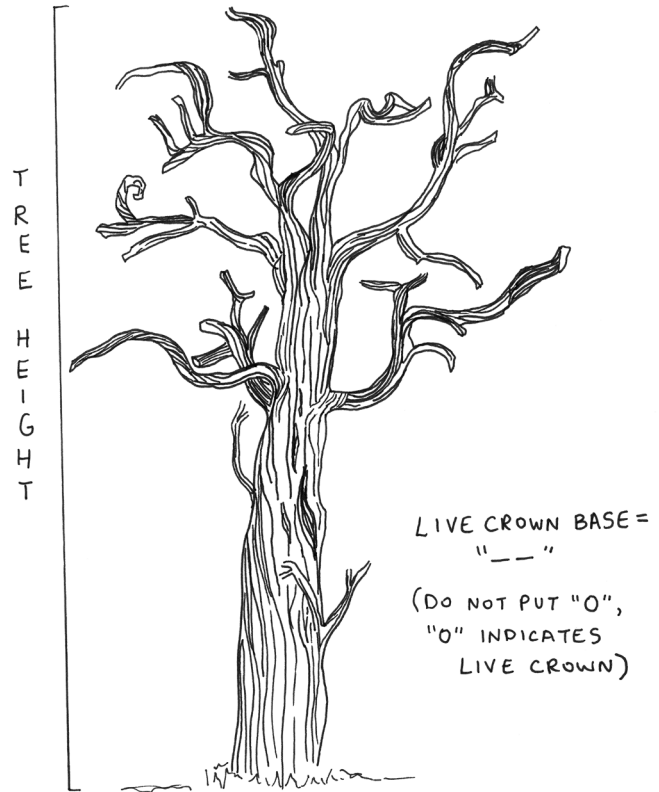 TREE HEIGHT
LIVE CROWN BASE =
"_ _"
(DO NOT PUT "O",
"O" INDICATES
LIVE CROWN)